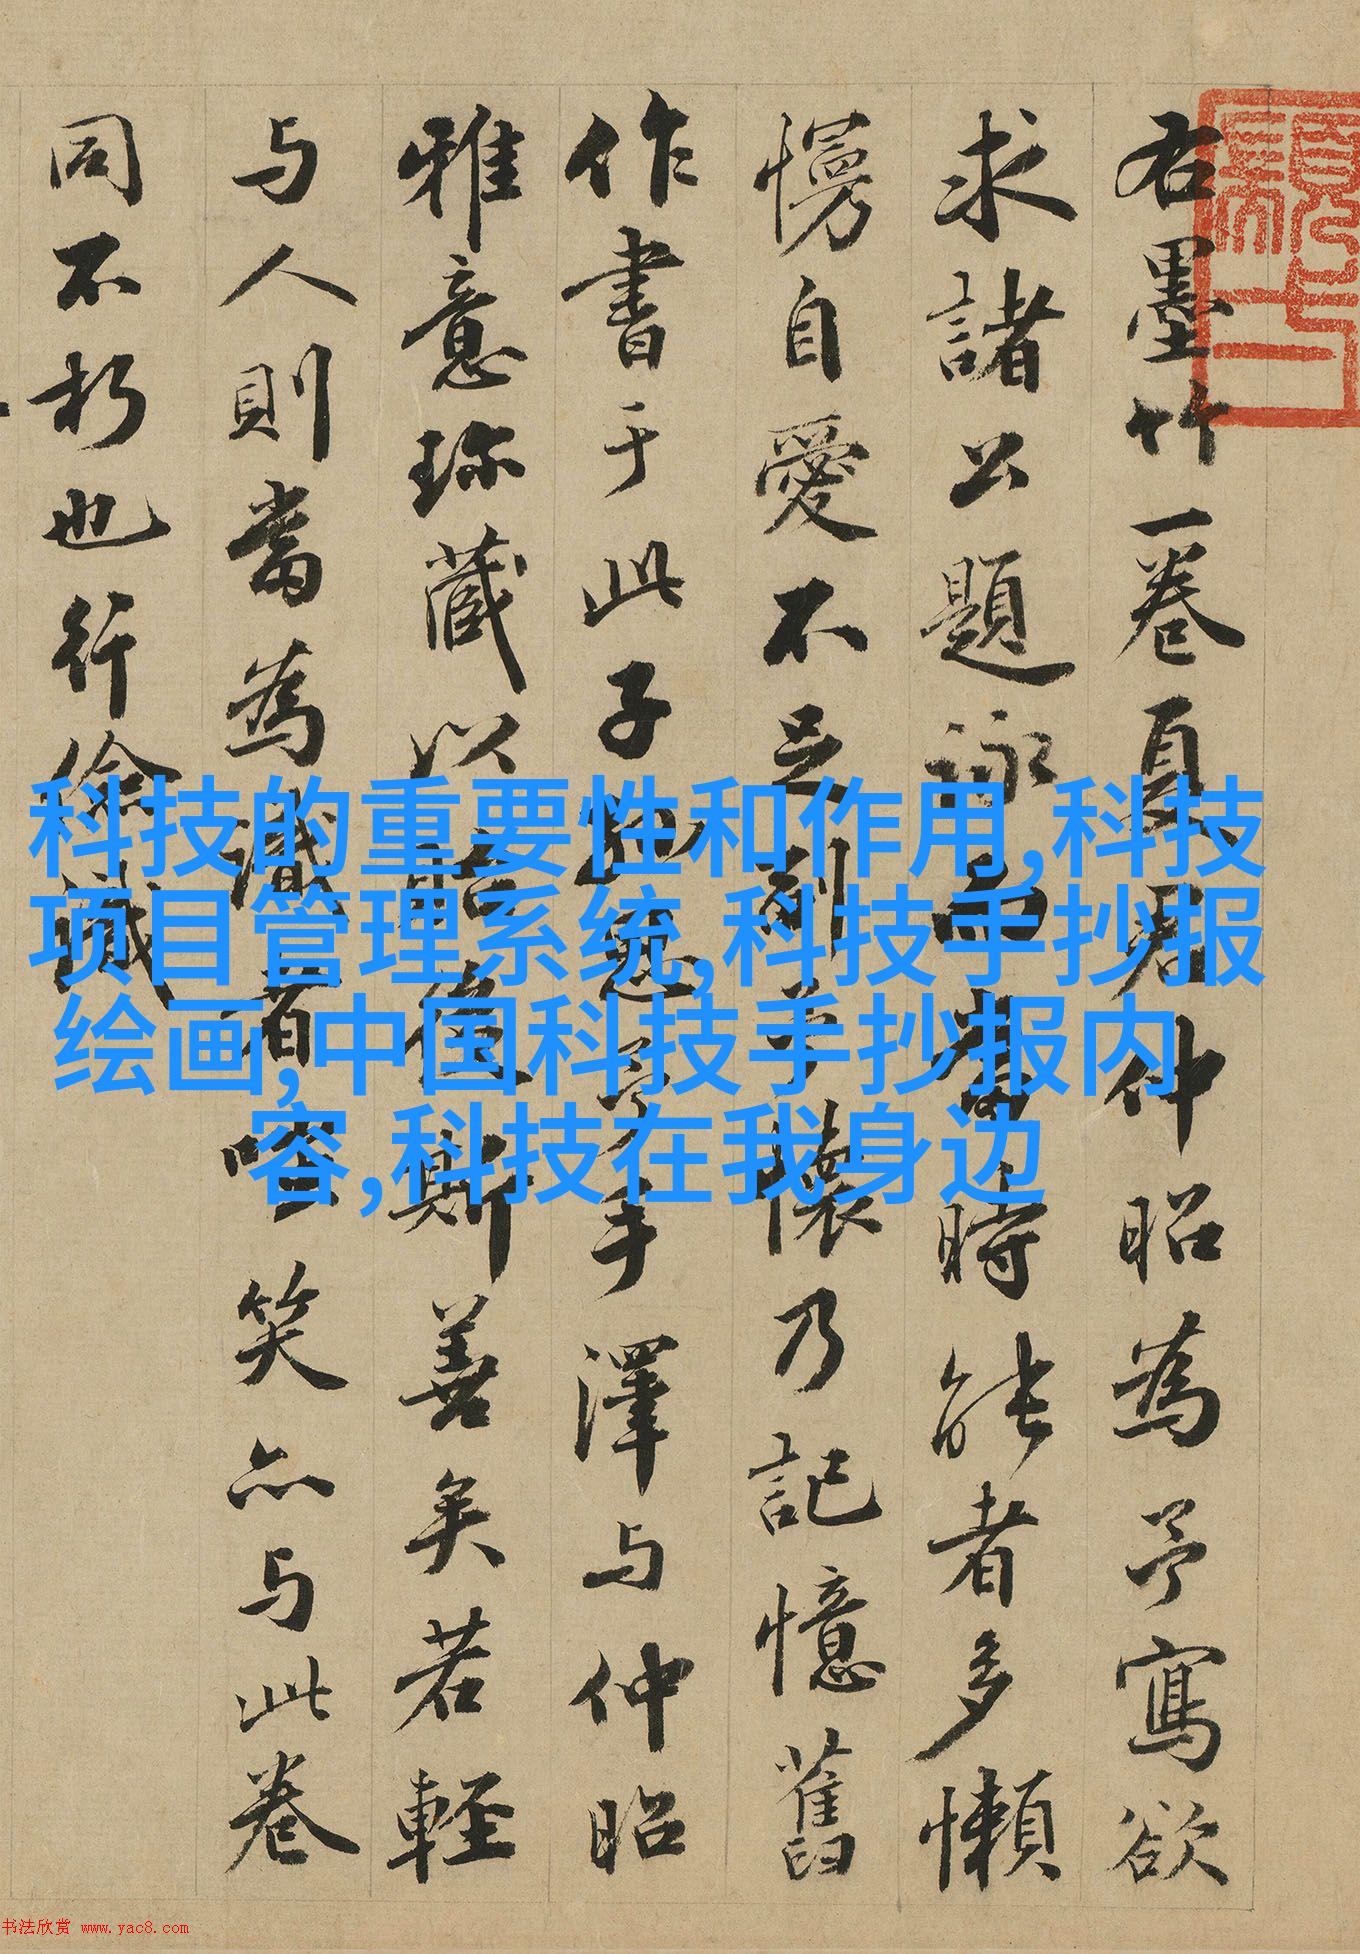 右墨竹一卷夏君仲昭為予寫欲
求諸公題詠而當時能者多懶
慢自愛不足副予懷乃記憶舊
作書于此子孫予手澤与仲昭
雅意珍藏以斯善矣若輕
与人則當為識者嗤笑亦与此卷
同不朽也行儉識
科技的重要性和作用,科技
项目管理系统,科技手抄报
绘画,中国科技手抄报内
容,科技在我身边
书法欣赏 www.yac8.com